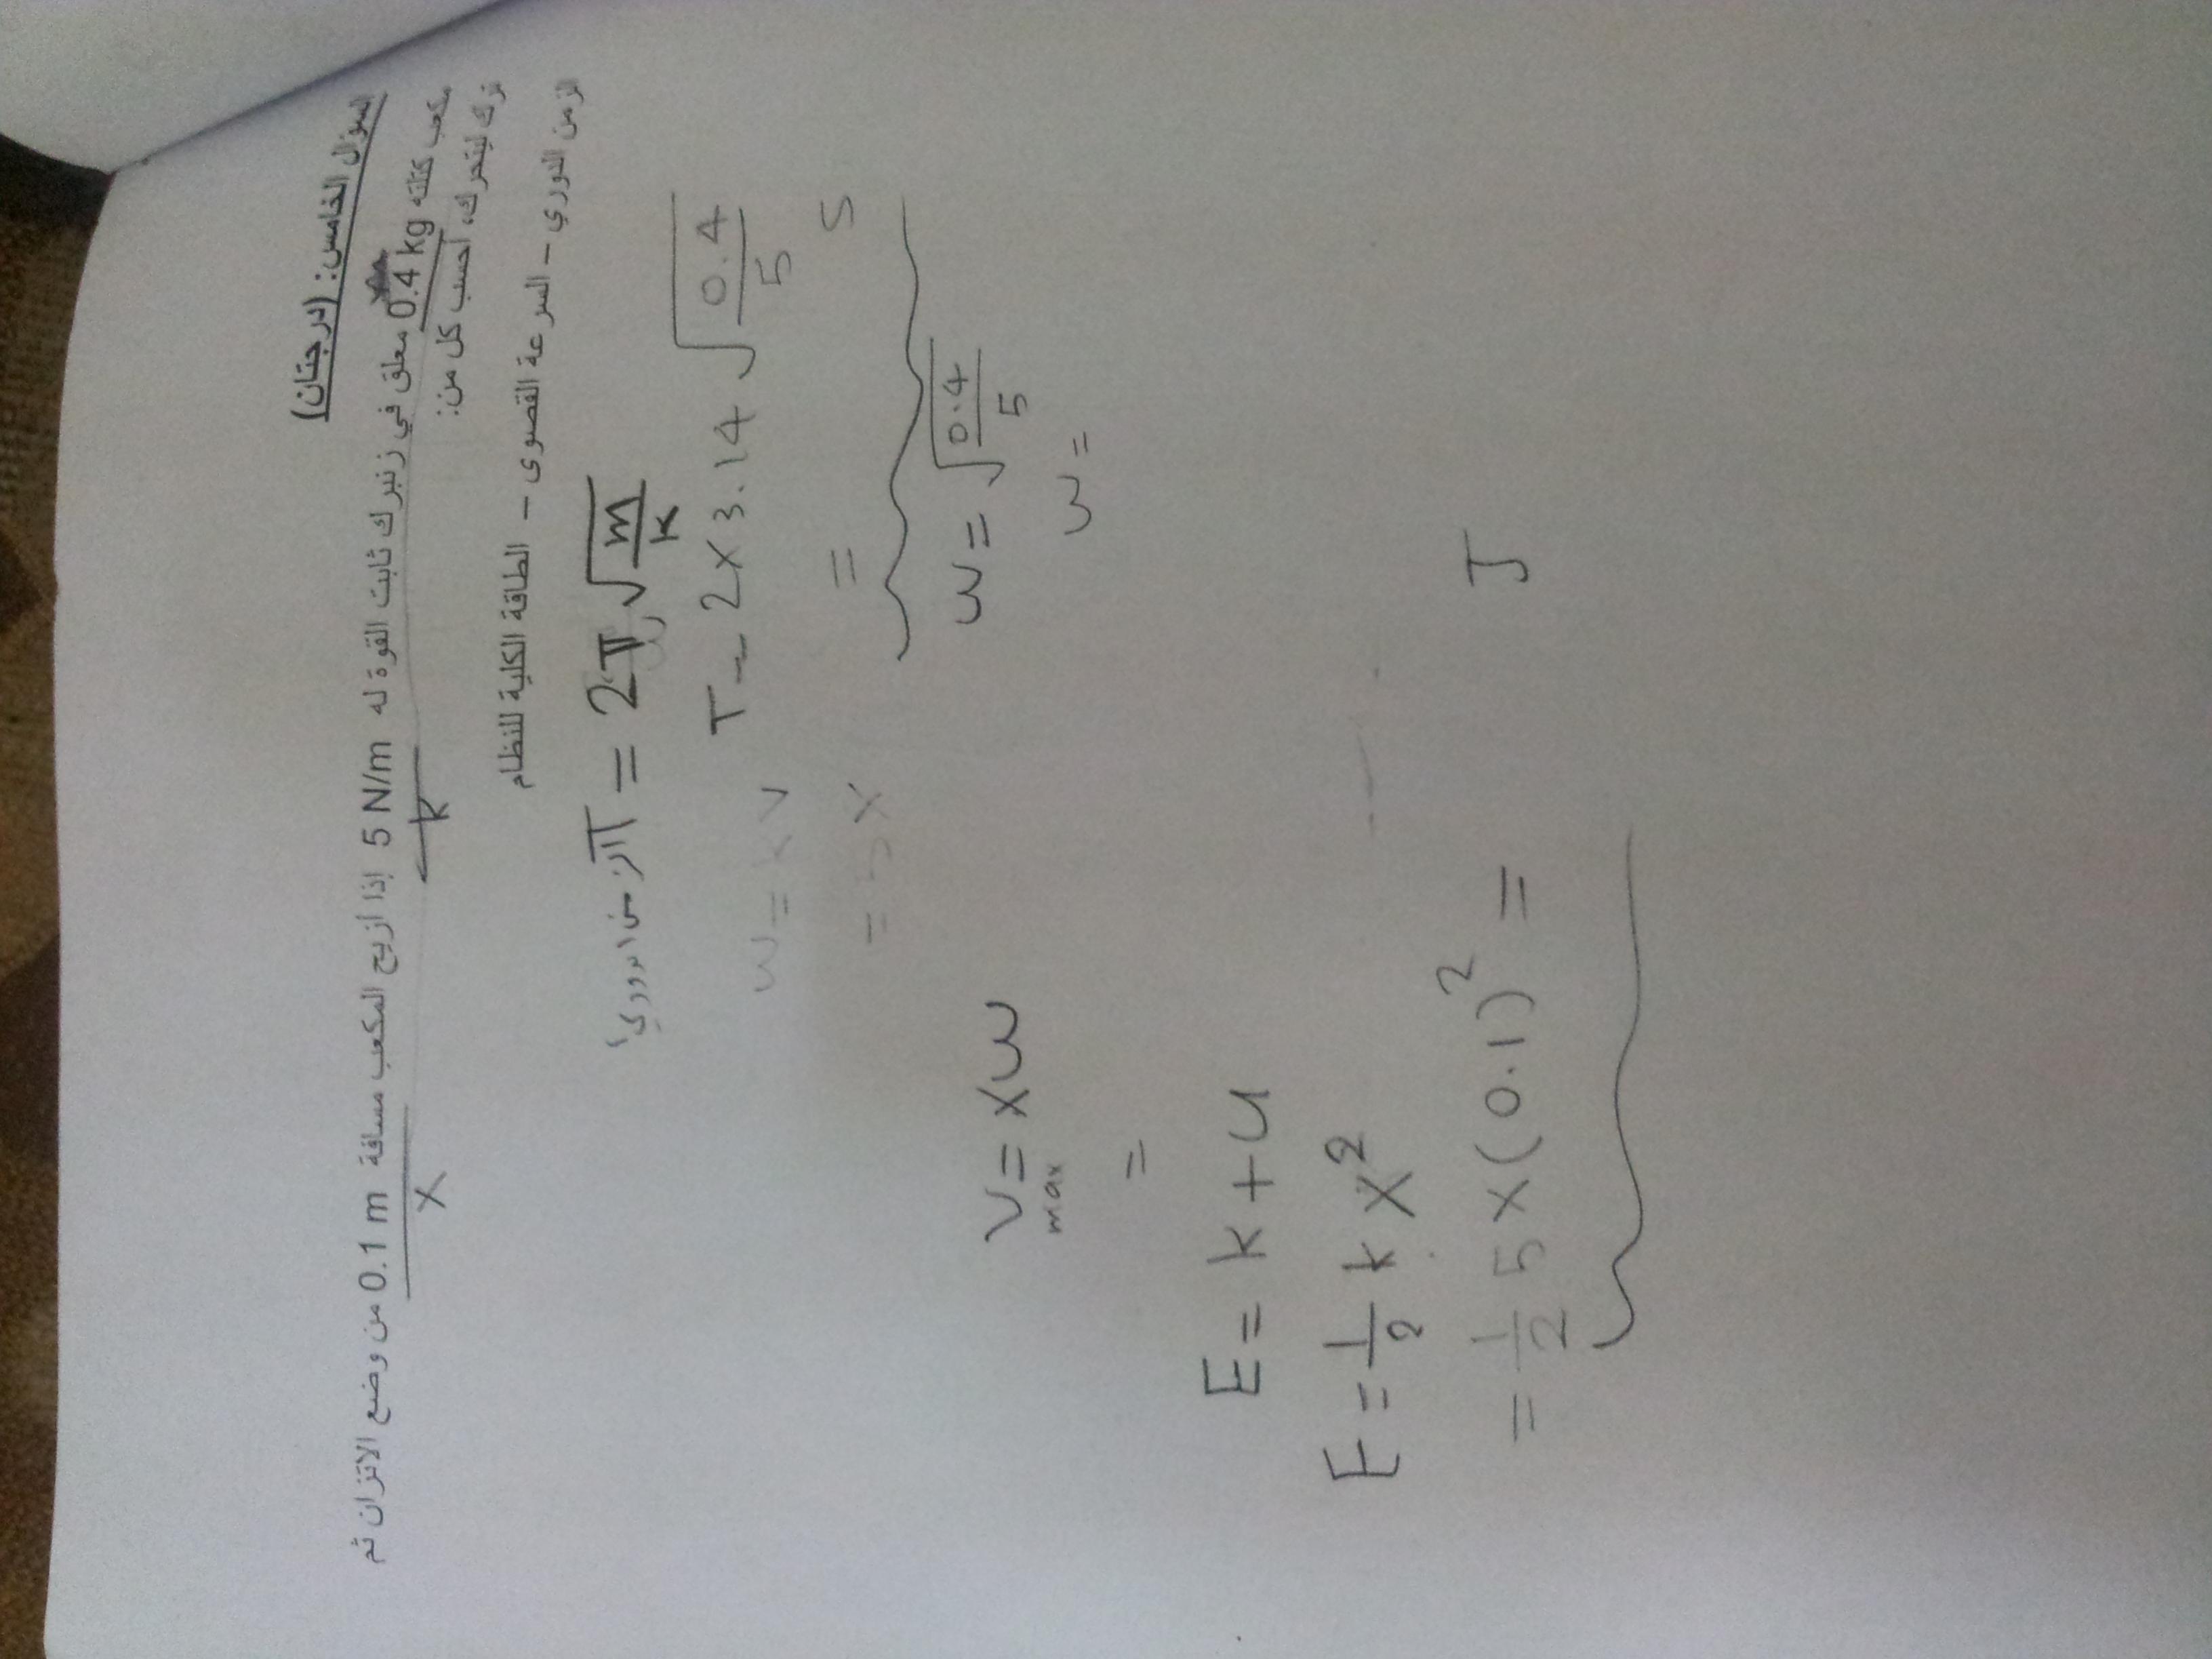 السؤال الخامس: (درجتان)
مكعب كتلته 0.4 kg معلق في زنبرك ثابت القوة له 5 N/m إذا أزيح المكعب مسافة 0.1 m من وضع الاتزان ثم
k
x
ترك ليتحرك، أحسب كل من:
الزمن الدوري – السرعة القصوى – الطاقة الكلية للنظام
T = 2π √m/k
T = 2x3.14 √0.4/5
= S
w = k
= 5 x
w = √0.4/5
w =
V max = xw
=
E = k + u
E = 1/2 k x²
= 1/2 5 x (0.1)² = J